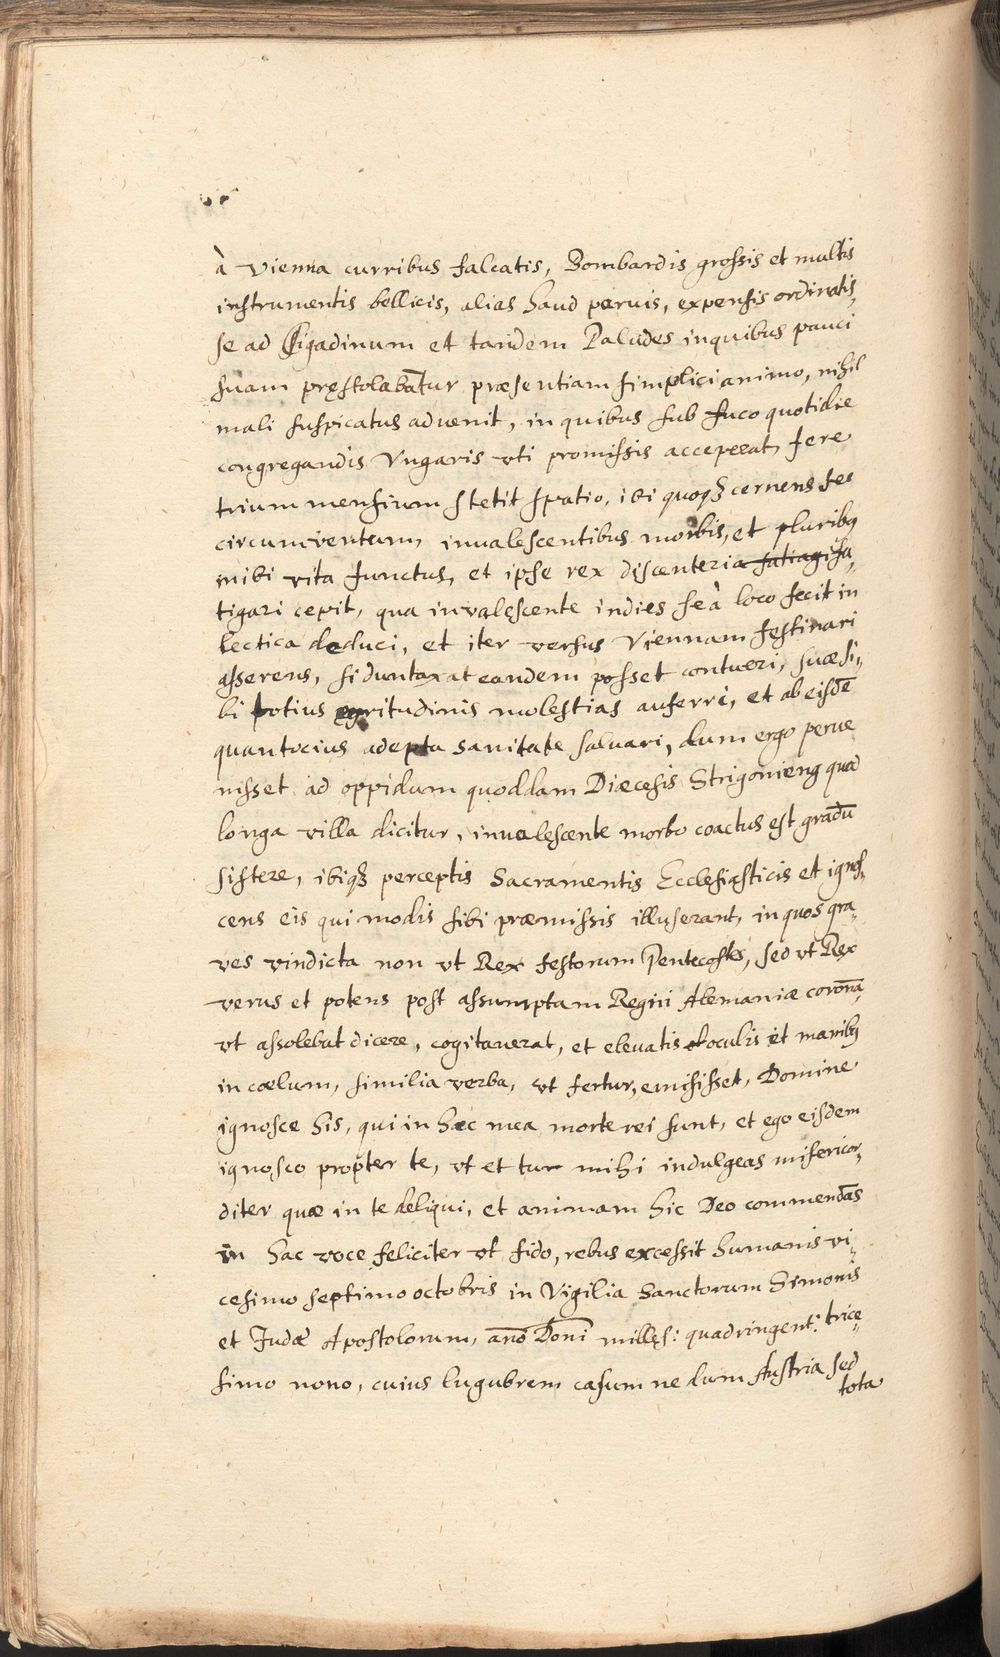 à Vienna curribus falcatis, Bombardis grossis et multis
instrumentis bellicis, alias haud parvis, expensis ordinatis,
se ad Sigadinum et tandem Paludes inquibus pauci
suam pręstolabātur præsentiam simplici animo, nihil
mali suspicatus advenit, in quibus sub fuco quotidie
congregandis Vngaris vti promissis acceperat, fere
trium mensium stetit spatio, ibi quoqꝫ cernens se
circumventum, invalescentibus morbis, et pluribꝰ
inibi vita functus, et ipse rex discenteria fatiagi fa„
tigari cepit, qua invalescente indies se à loco fecit in
lectica deduci, et iter versus Viennam festinari
asserens, si duntaxat eandem posset contueri, suæ si„
bi potius egritudinis molestias auferri, et ab eisdē
quantocius adepta sanitate salvari, dum ergo perve
nisset ad oppidum quoddam Diæcesis Strigonieng quod
longa villa dicitur, invalescente morbo coactus est gradū
sistere, ibiqꝫ perceptis Sacramentis Ecclesiasticis et ignos„
cens eis qui modis sibi præmissis illuserant, in quos gra„
ves vindicta non vt Rex festorum Pentecostes, sed vt Rex
verus et potens post assumptam Regni Alemaniæ coronā,
vt assolebat dicere, cogitaverat, et elevatis oculis et manibꝰ
in cœlum, similia verba, vt fertur, emisisset, Domine
ignosce his, qui in hac mea morte rei sunt, et ego eisdem
ignosco propter te, vt et tu mihi indulgeas misericor„
diter quæ in te deliqui, et animam hic Deo commendās
in hac voce feliciter vt fido, rebus excessit humanis vi„
cesimo septimo octobris in Vigilia Sanctorum Simonis
et Judæ Apostolorum, año Doni millęs: quadringent: trice„
simo nono, cuius lugubrem casum ne dum Austria sed
tota